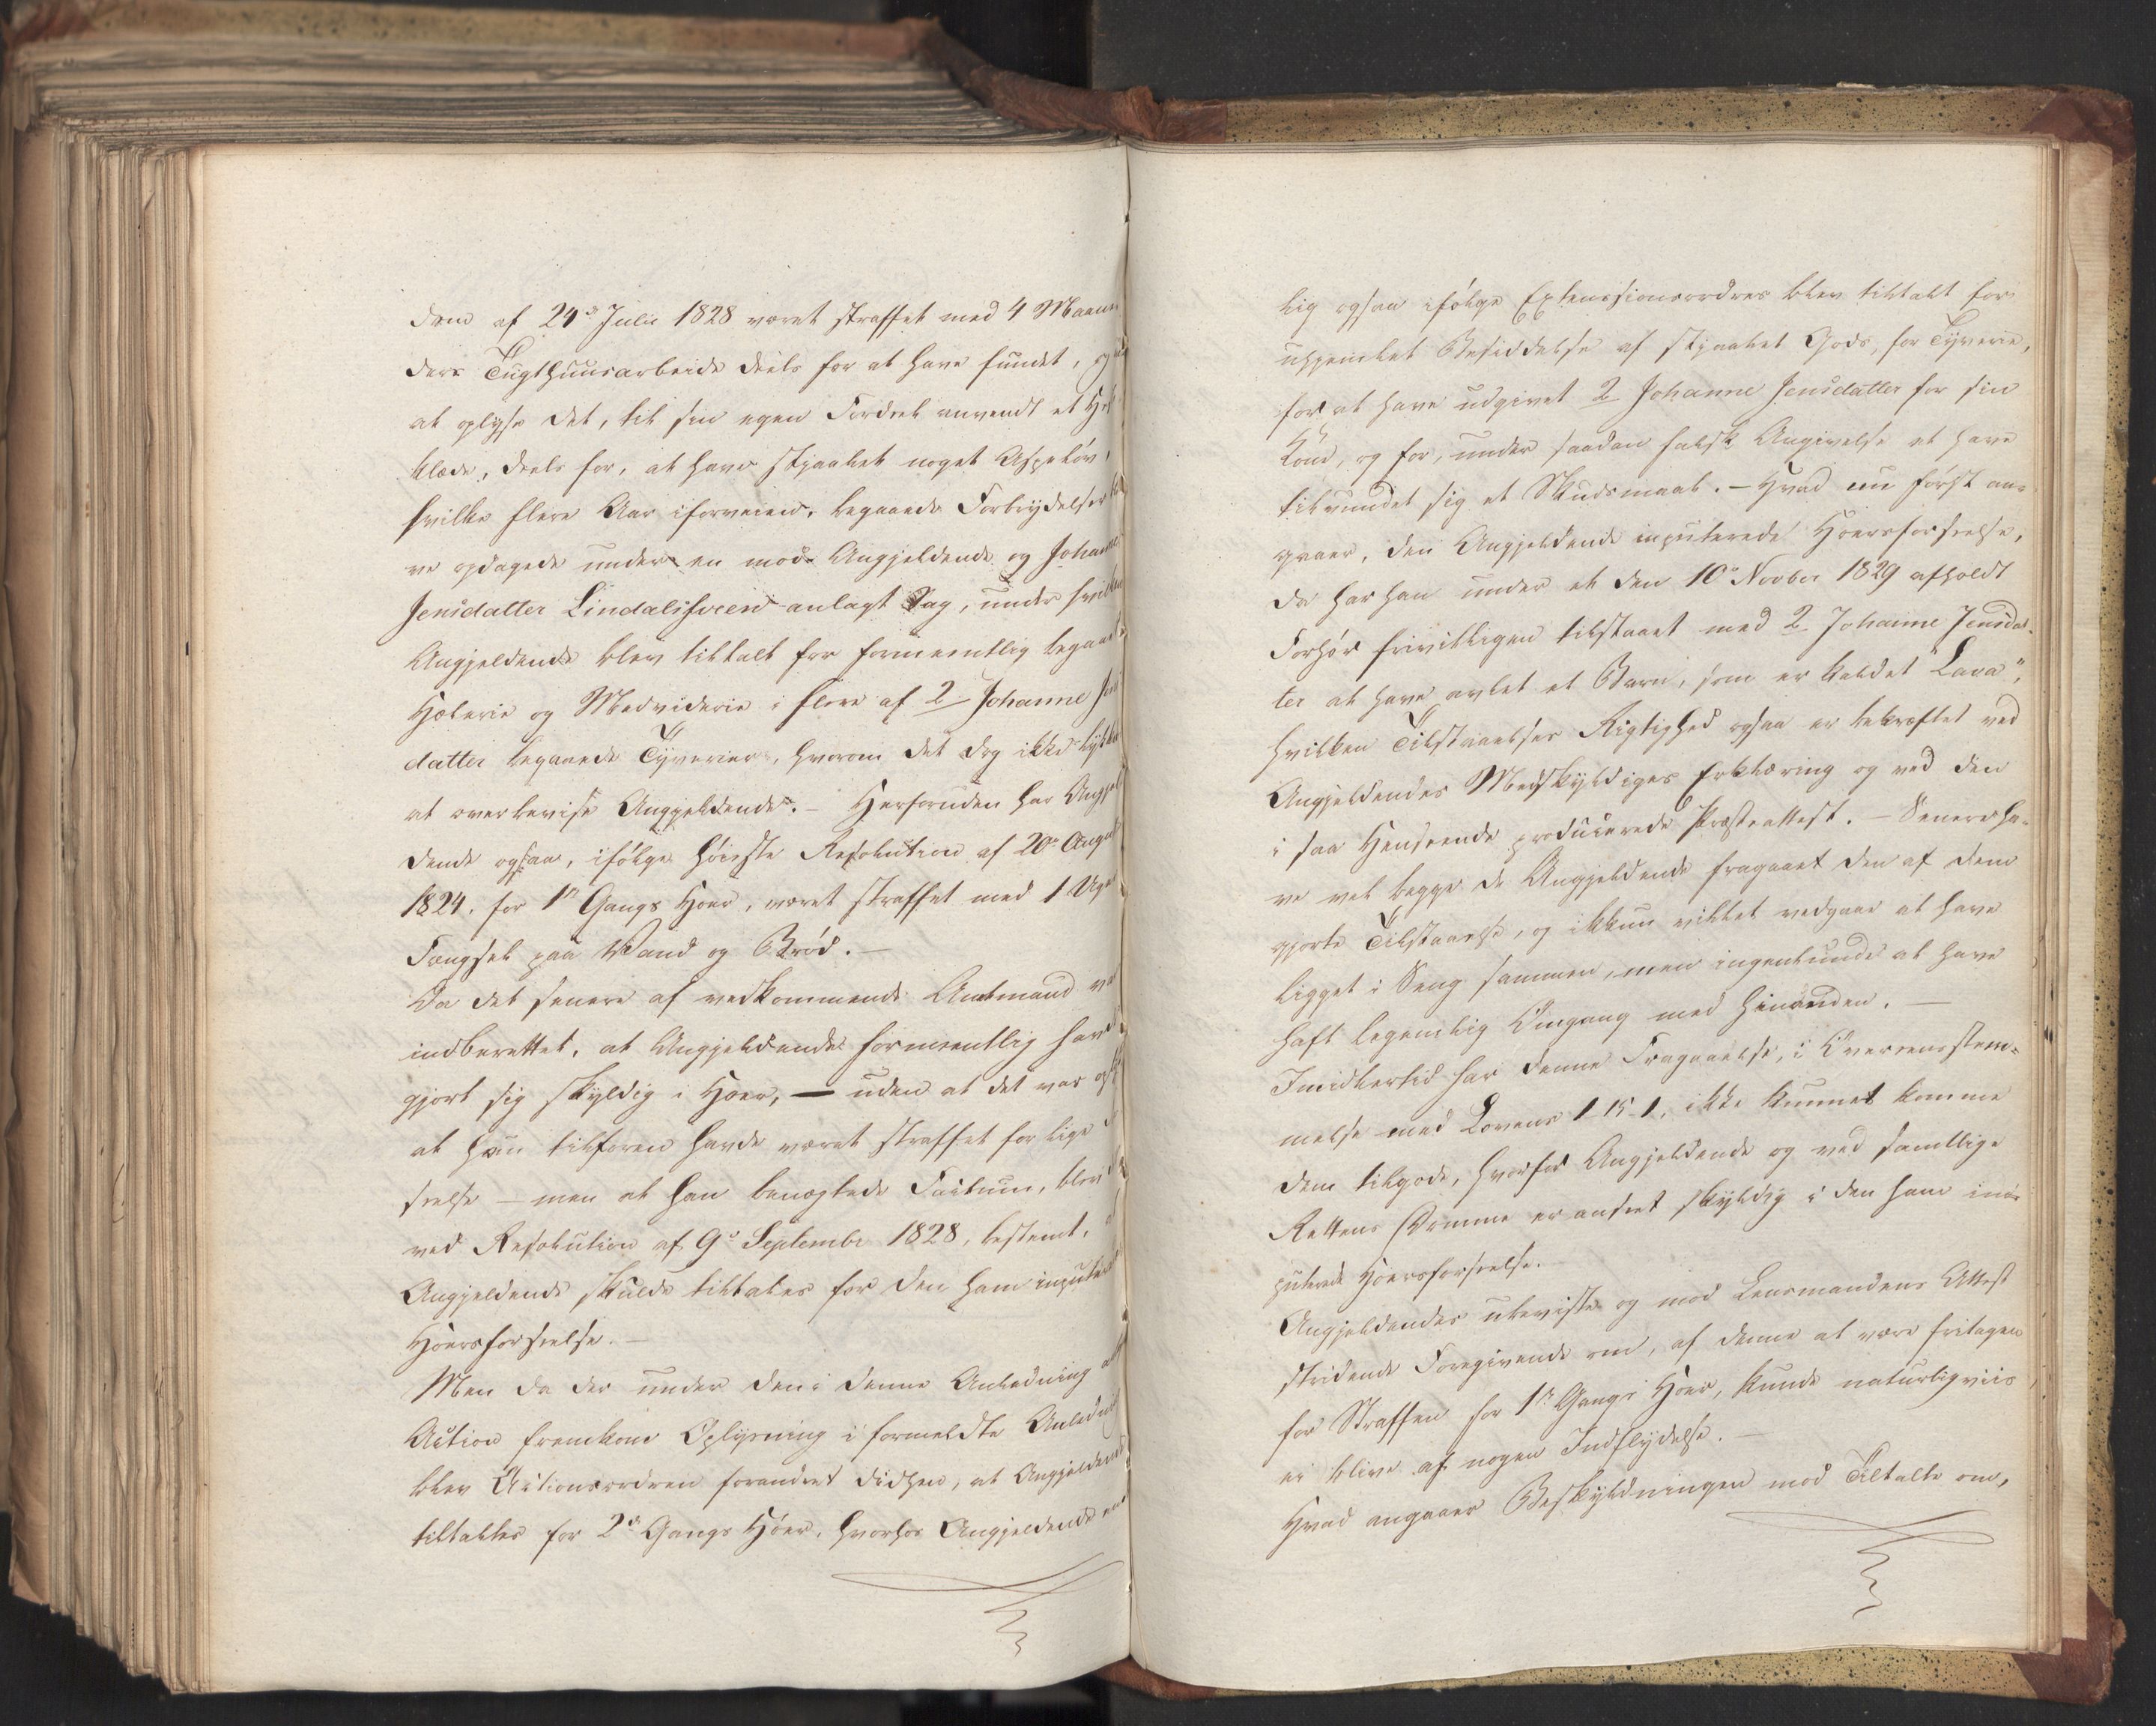 dom af 24de Julii 1828 været straffet med 4 Maane
ders Tugthuusarbeide deels for at have fundet, og
at oplyse det, til sin egen Fordeel anvendt et
klæde, deels for, at have stjaalet noget Aspeløv,
hvilke flere Aar iforveien begaaede Forbrydelser
ve opdagede under en mod Angjeldende og Johanne
Jensdatter Lindalshveen anlagt Sag, under hvilken
Angjeldende blev tiltalt for formeentlig begaaet
Hæleri og Medviderie i flere af 2 Johanne Jens
datter begaaede Tyverier, hvorom det dog ikke lykke
at overbevise Angjeldende. – Herforuden har Angjel
dende ogsaa, ifølge høieste Resolution af 20de August
1824, for 1ste Gangs Hoer, været straffet med 1 Uges
Fængsel paa Vand og Brød. –
Da det senere af vedkommende Amtmand
indberettet, at Angjeldende formeentlig havde
gjort sig skyldig i Hoer, – uden at det var
at han tilforen havde været straffet for lige
seelse – men at han benægtede Factum, blev
ved Resolution af 9de Septembr 1828, bestemt,
Angjeldende skulde tiltales for den ham imputerede
Hoersforseelse. –
Men da der under den i denne Anledning
Action fremkom Oplysning i formeldte Anledning
blev Actionsordren forandret didhen, at Angjeldende
tiltaltes for 2den Gangs Hoer, hvorhos Angjeldende
lig ogsaa ifølge Extensionsordrer blev tiltalt for
uhjemlet Besiddelse af stjaalet Gods, for Tyverie,
for at have udgivet 2 Johanne Jensdatter for sin
Kone, og for, under saadan falsk Angivelse at have
tilvundet sig et Skudsmaal. – Hvad nu først an-
gaaer, den Angjeldende imputerede Hoersforseelse,
da har han under et den 10de Novbr 1829 afholdt
Forhør frivilligen tilstaaet med 2 Johanne Jensdat-
ter at have avlet et Barn, som er kaldet "Lava",
hvilken Tilstaaelses Rigtighed ogsaa er bekræftet ved
Angjeldendes Medskyldiges Erklæring og ved den
i saa Henseende producerede Præsteattest. – Senere ha-
ve vel begge de Angjeldende fragaaet den af dem
gjorte Tilstaaelse, og ikkun villet vedgaae at have
ligget i Seng sammen, men ingenlunde at have
haft legemlig Omgang med hinanden. –
Imidlertid har denne Fragaaelse, i Overeensstem-
melse med Lovens 1-15-1, ikke kunnet komme
dem tilgode, hvorfor Angjeldende og ved samtlige
Rettens Domme er anseet skyldig i den ham im-
puterede Hoersforseelse.
Angjeldendes ubeviste og mod Lensmandens Attest
stridende Foregivende om, af denne at være fritagen
for Straffen for 1ste Gangs Hoer, kunde naturligviis
ei blive af nogen Indflydelse. –
Hvad angaaer Beskyldningen mod Tiltalte om,